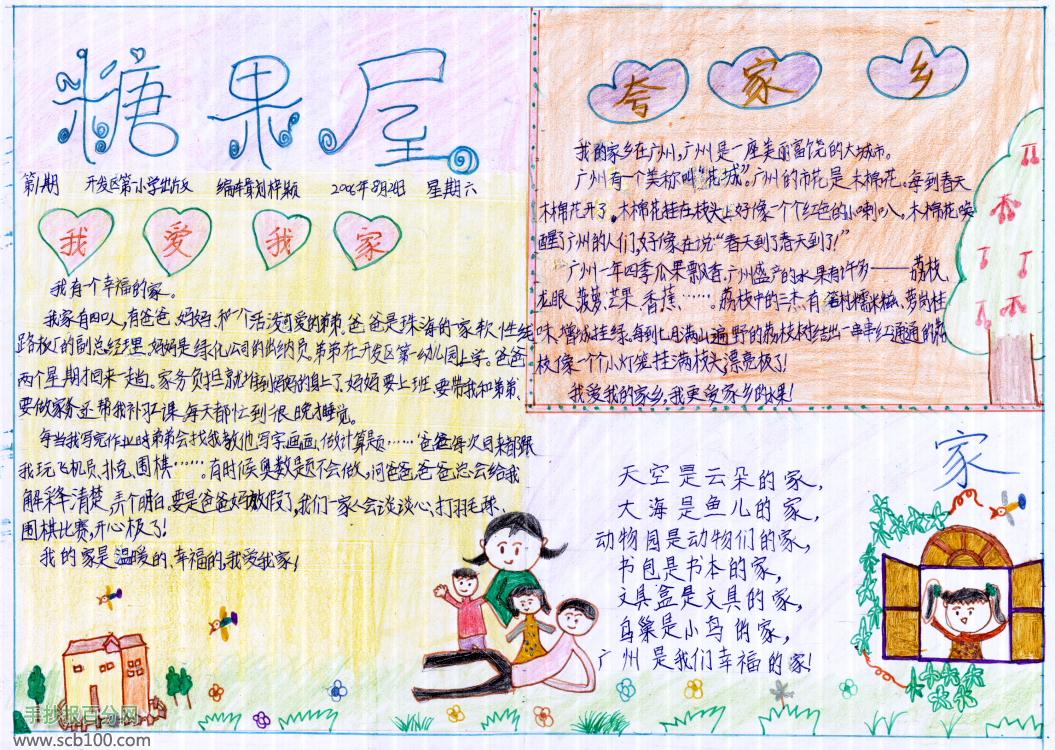 糖果屋
第1期 开发区第一小学出版 编辑 2006年8月24日 星期六
我爱我家
我有一个幸福的家。
我家有四口人,有爸爸、妈妈、和一个活泼可爱的弟弟。爸爸是珠海的一家软性线
路板厂的副总经理。妈妈是绿化公司的出纳员。弟弟在开发区第一幼儿园上学。爸爸
两个星期才回来一趟。家务负担就堆到妈妈的身上了。妈妈要上班、要带我和弟弟、
要做家务还帮我补习功课,每天都忙到很晚才睡觉。
每当我写完作业时弟弟会找我教他写字、画画、做计算题……爸爸每次回来都跟
我玩飞机员、扑克、围棋……。有时候奥数题不会做,问爸爸,爸爸总会给我
解释清楚,弄个明白。要是爸爸妈妈放假了,我们一家人会谈谈心、打羽毛球、
围棋比赛,开心极了!
我的家是温暖的、幸福的,我爱我家!
夸家乡
我的家乡在广州,广州是一座美丽富饶的大城市。
广州有一个美称叫“花城”。广州的市花是木棉花。每到春天
木棉花开了。木棉花挂在枝头上好像一个个红色的小喇叭。木棉花唤
醒了广州的人们,好像在说“春天到了春天到了!”
广州一年四季瓜果飘香。广州盛产的水果有许多——荔枝、
龙眼、菠萝、芒果、香蕉、……。荔枝中的三杰,有糯米糍、萝岗桂
味、增城挂绿。每到七月满山遍野的荔枝树结出一串串红通通的荔
枝,像一个个小灯笼挂满枝头,漂亮极了!
我爱我的家乡,我更爱家乡的水果!
家
天空是云朵的家,
大海是鱼儿的家,
动物园是动物们的家,
书包是书本的家,
文具盒是文具的家,
鸟巢是小鸟的家,
广州是我们幸福的家!
手抄报百分网
www.scb100.com